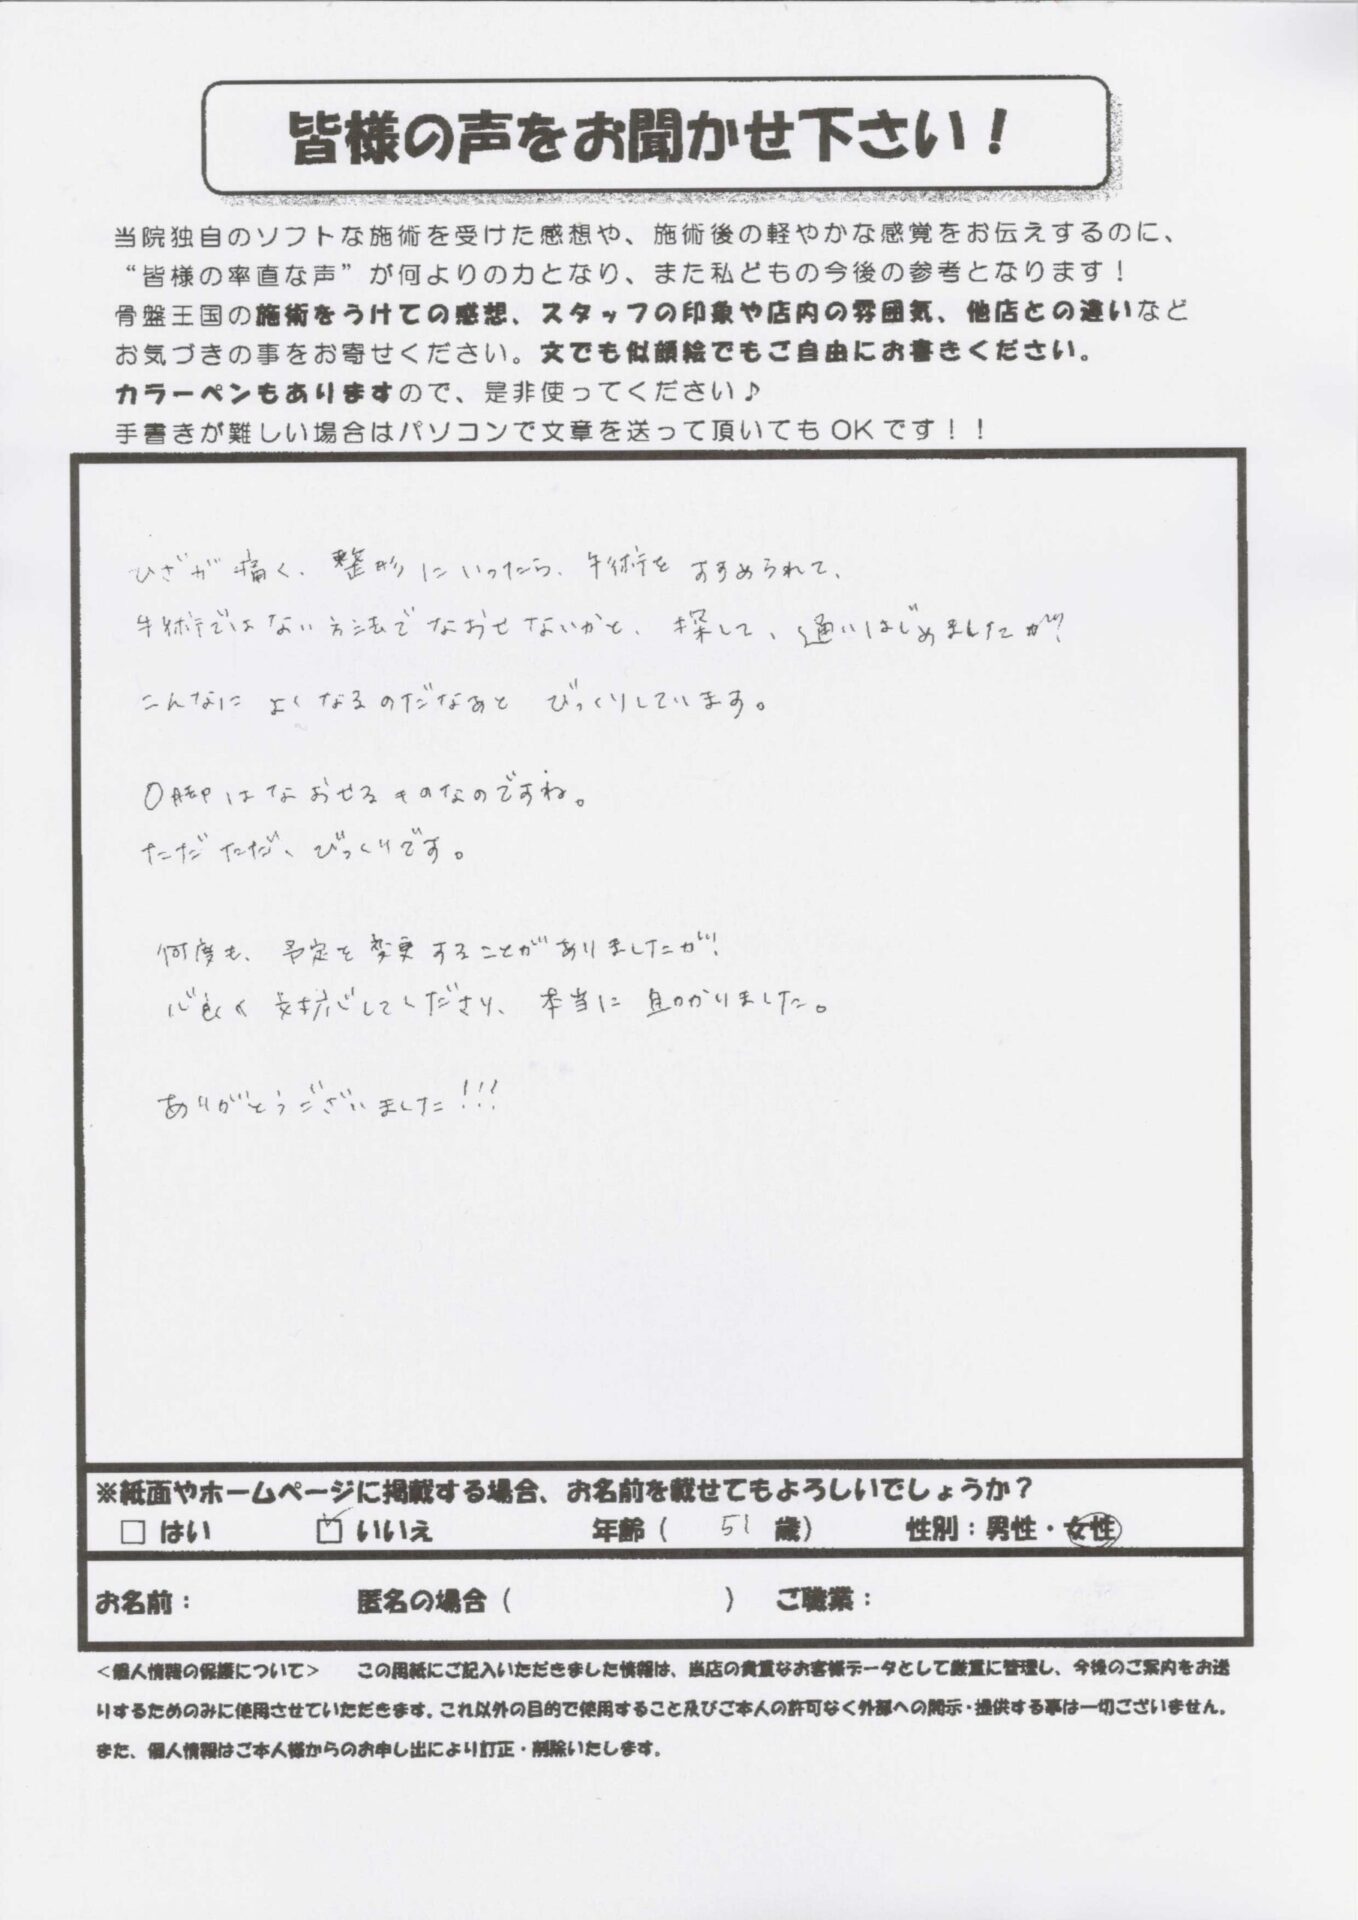 皆様の声をお聞かせ下さい！
当院独自のソフトな施術を受けた感想や、施術後の軽やかな感覚をお伝えするのに、
“皆様の率直な声”が何よりの力となり、また私どもの今後の参考となります！
骨盤王国の施術をうけての感想、スタッフの印象や店内の雰囲気、他店との違いなど
お気づきの事をお寄せください。文でも似顔絵でもご自由にお書きください。
カラーペンもありますので、是非使ってください♪
手書きが難しい場合はパソコンで文章を送って頂いてもOKです！！
ひざが痛く、整形にいったら、手術をすすめられて、
手術ではない方法でなおせないかと、探して、通いはじめましたが、
こんなによくなるのだなあとびっくりしています。
O脚はなおせるものなのですね。
ただただ、びっくりです。
何度も、予定を変更することがありましたが、
心良く対応してくださり、本当に助かりました。
ありがとうございました！！！
※紙面やホームページに掲載する場合、お名前を載せてもよろしいでしょうか？
□ はい ☑ いいえ 年齢（ 51 歳） 性別：男性・女性
お名前： 匿名の場合（ ） ご職業：
＜個人情報の保護について＞ この用紙にご記入いただきました情報は、当店の貴重なお客様データとして厳重に管理し、今後のご案内をお送
りするためのみに使用させていただきます。これ以外の目的で使用すること及びご本人の許可なく外部への開示・提供する事は一切ございません。
また、個人情報はご本人様からのお申し出により訂正・削除いたします。